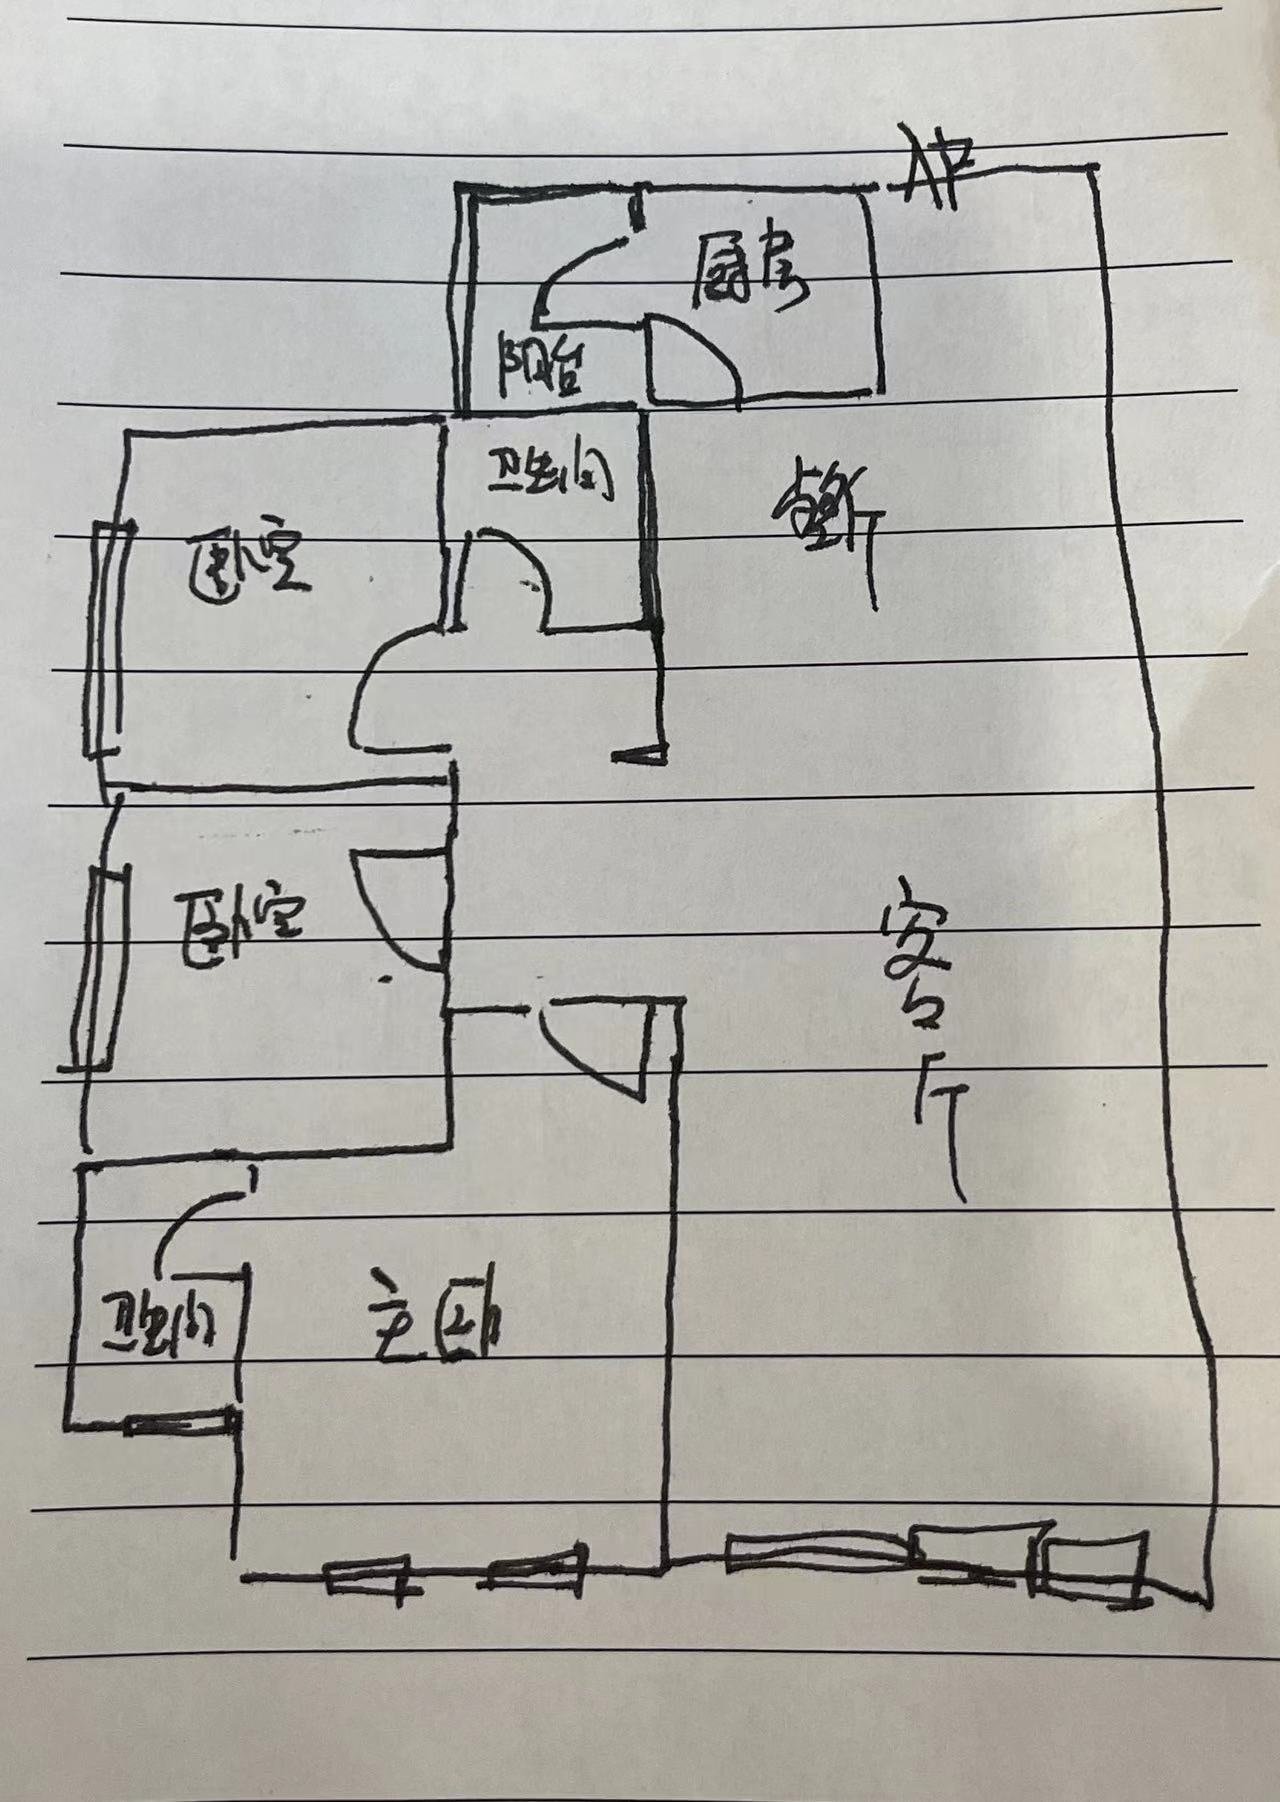 入户
厨房
阳台
卫生间
餐厅
卧室
卧室
客厅
卫生间
主卧